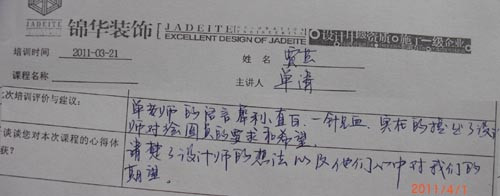 JADEITE
锦华装饰
JADEITE
EXCELLENT DESIGN OF JADEITE
设计甲级资质 施工一级企业
培训时间 2011-03-21 姓名
课程名称 主讲人 单涛
次培训评价与建议:
单老师的语言犀利、直白、一针见血、实在的提出了设
师对绘图员的要求和希望。
谈谈您对本次课程的心得体
获?
清楚了设计师的想法以及他们心中对我们的
期望。
2011/4/1